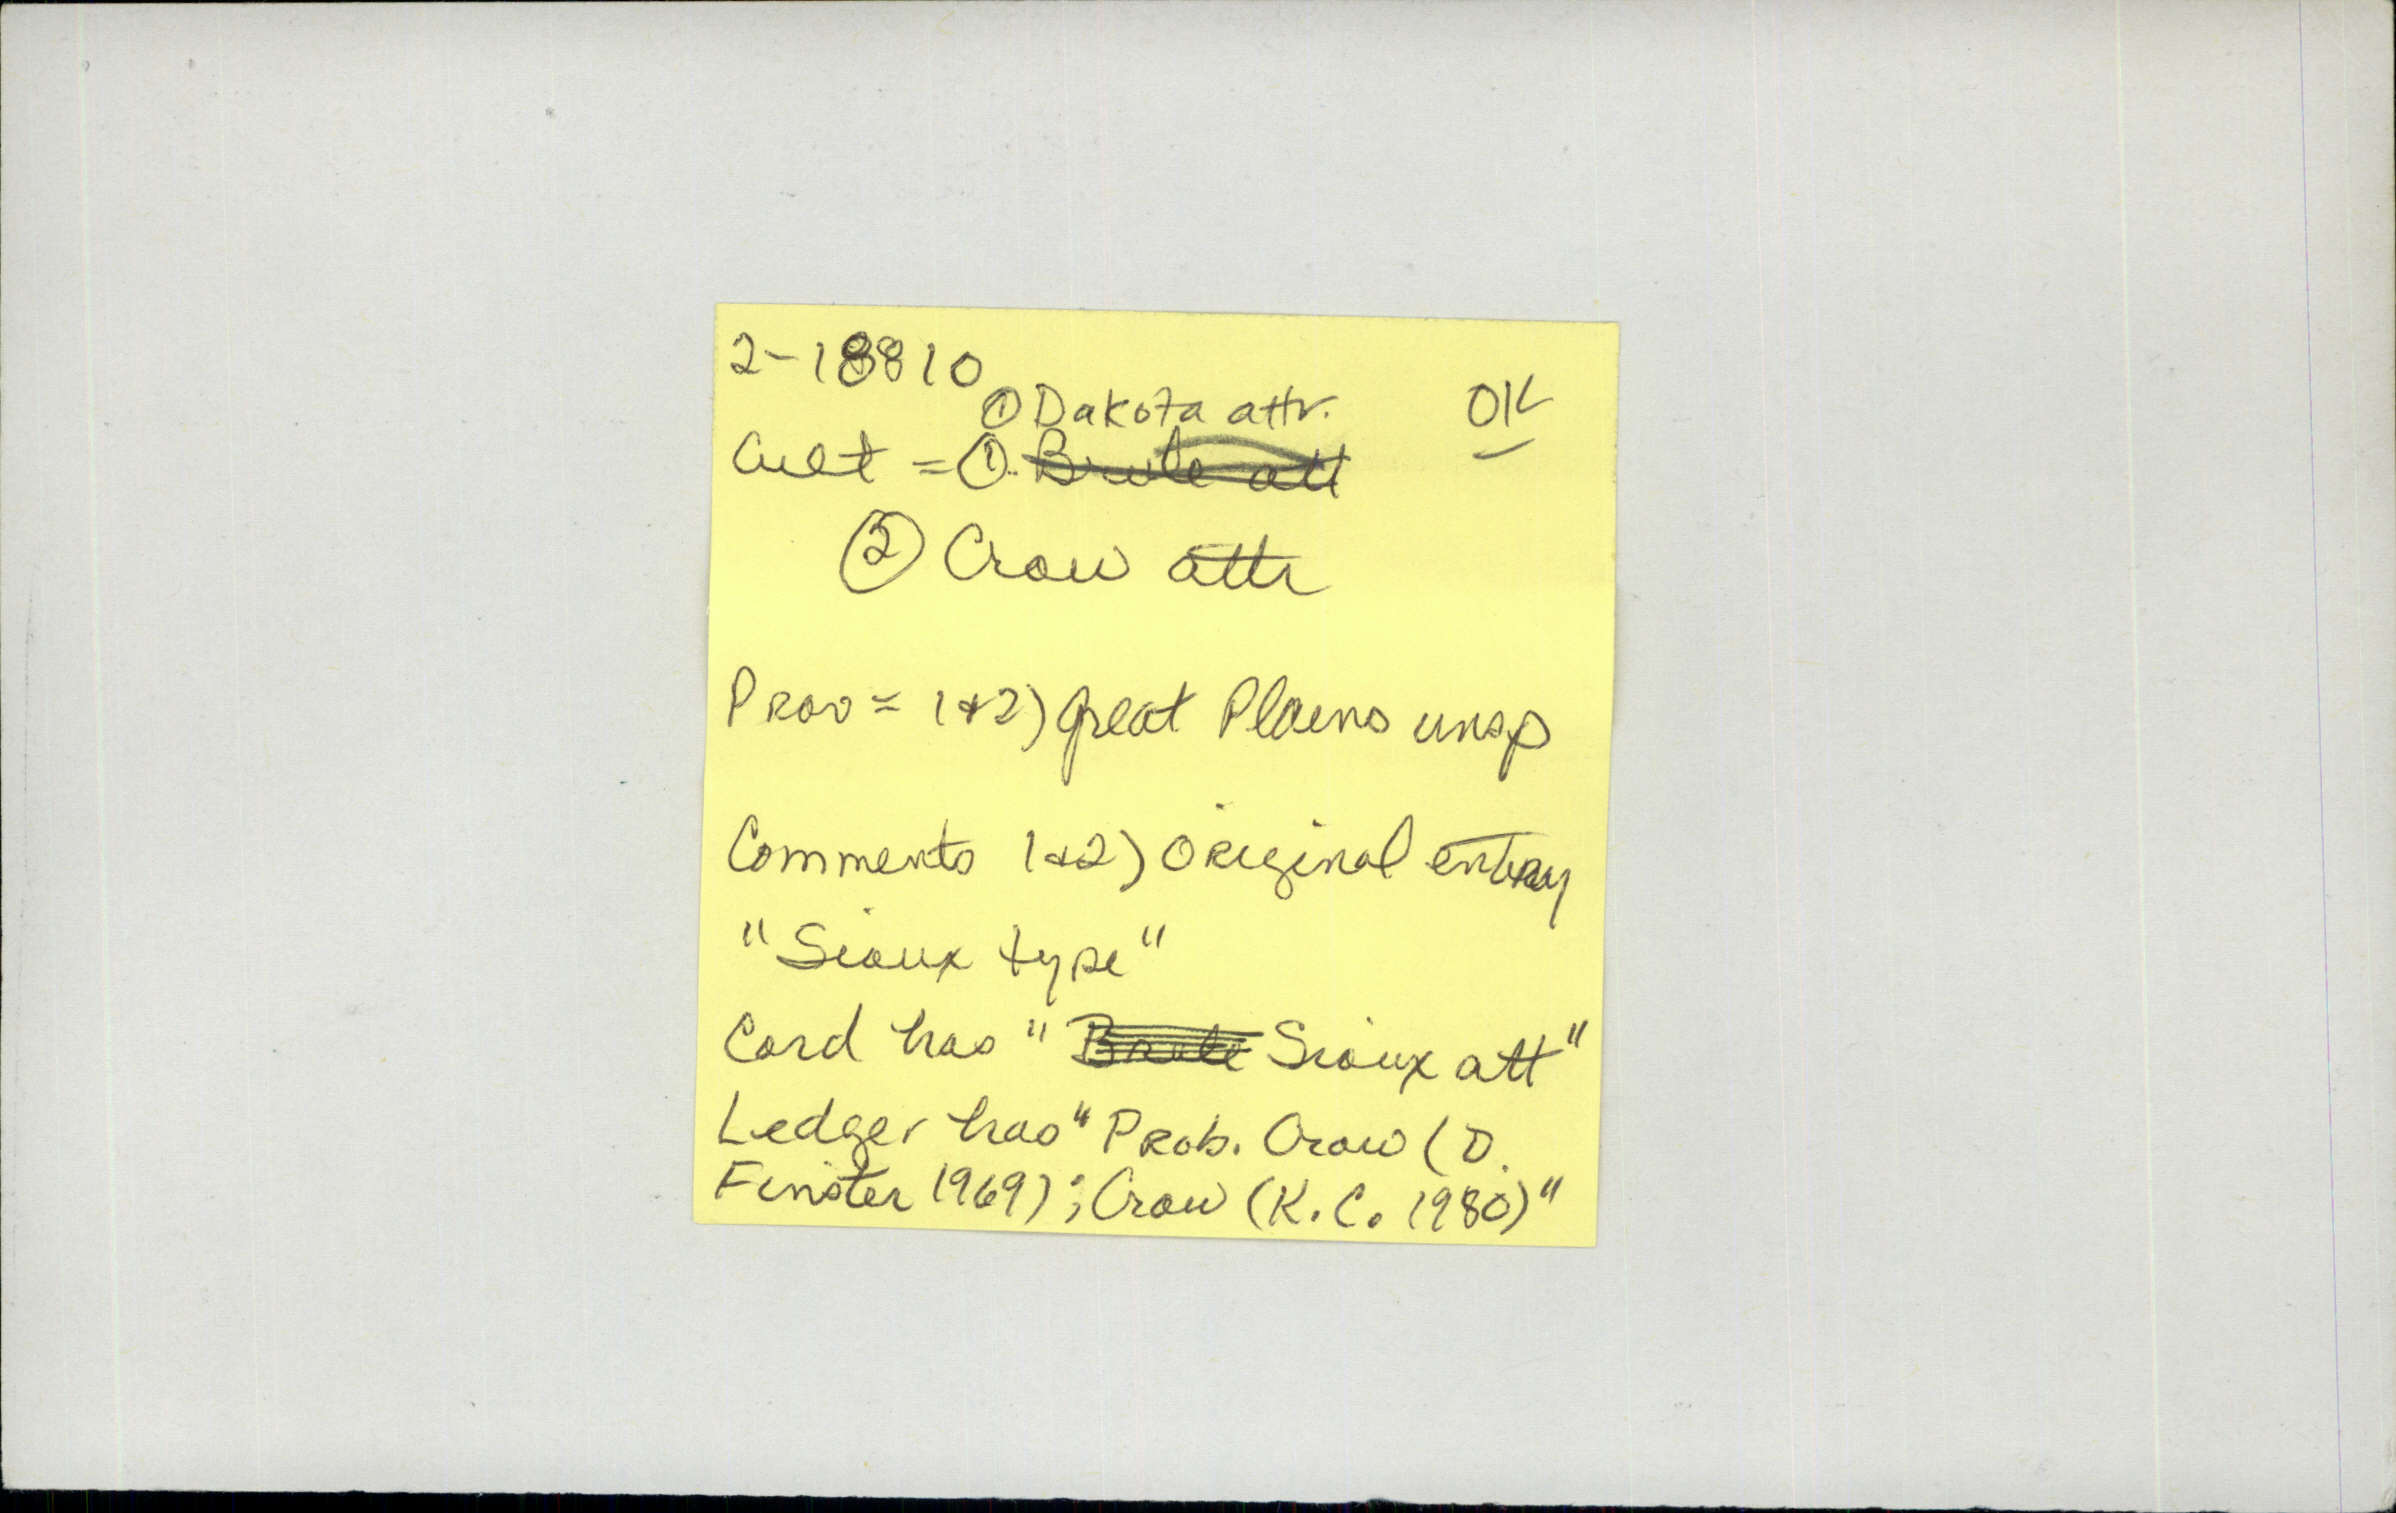 2-18810
① Dakota attr. OK
Cult = ①. Brule att
② Crow attr
Prov = 1+2) Great Plains unsp
Comments 1+2) Original entry
"Sioux type"
Card has "Brule Sioux att"
Ledger has "Prob. Crow (D.
Finster 1969); Crow (K.C. 1980)"